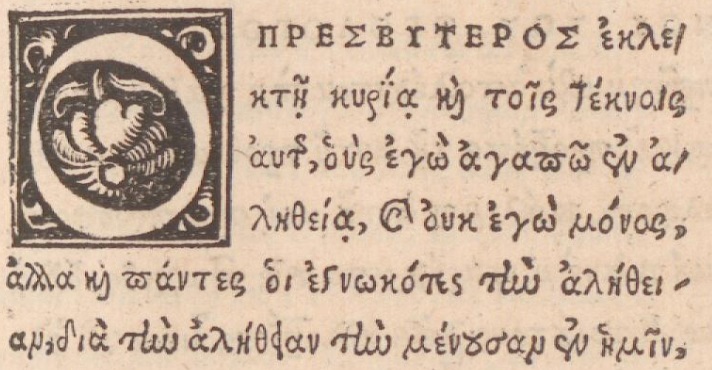 Ο ΠΡΕΣΒΥΤΕΡΟΣ ἐκλε/
κτῇ κυρίᾳ καὶ τοῖς τέκνοις
ἀυτῆς, ὁὺς ἐγὼ ἀγαπῶ ἐν ἀ/
ληθείᾳ, Καὶ ὀυκ ἐγὼ μόνος,
ἀλλα καὶ πάντες ὁι ἐγνωκότες τὴν ἀλήθει/
αν, διὰ τὴν ἀλήθειαν τὴν μένουσαν ἐν ἡμῖν,